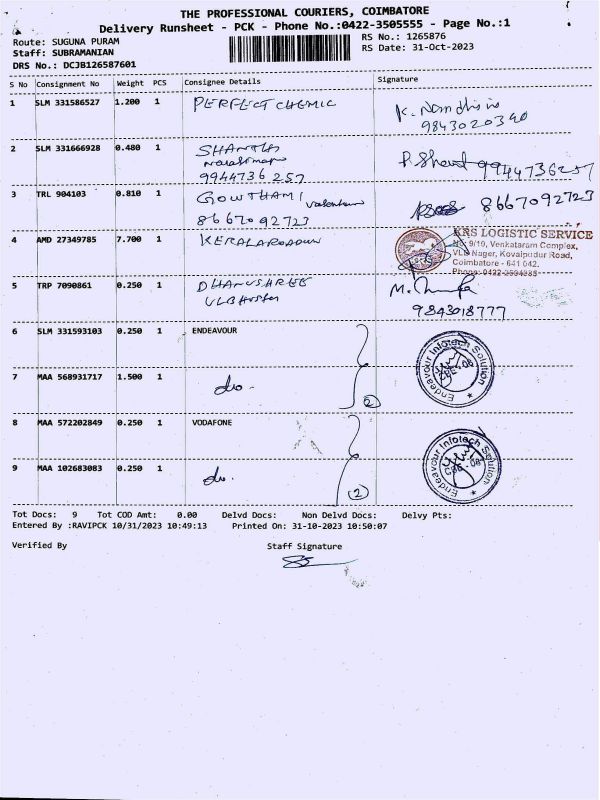 THE PROFESSIONAL COURIERS, COIMBATORE
Delivery Runsheet - PCK - Phone No.:0422-3505555 - Page No.:1
Route: SUGUNA PURAM
Staff: SUBRAMANIAN
DRS No.: DCJB126587601
RS No.: 1265876
RS Date: 31-Oct-2023
S No Consignment No Weight PCS Consignee Details Signature
1 SLM 331586527 1.200 1 PERFECT CHEMIC
9843020340
2 SLM 331666928 0.480 1 SHANTHI
9944736257
9944736257
3 TRL 904103 0.810 1 GOWTHAMI
8667092723
8667092723
4 AMD 27349785 7.700 1
KRS LOGISTIC SERVICE
No: 9/10, Venkataram Complex,
VLB Nager, Kovaipudur Road,
Coimbatore - 641 042.
5 TRP 7090861 0.250 1 DHANUSHREE
VLB Hostel
9843018777
6 SLM 331593103 0.250 1 ENDEAVOUR
Endeavour Infotech Solution
7 MAA 568931717 1.500 1 do.
2
8 MAA 572202849 0.250 1 VODAFONE
Endeavour Infotech Solution
9 MAA 102683083 0.250 1 do.
(2)
Tot Docs: 9 Tot COD Amt: 0.00 Delvd Docs: Non Delvd Docs: Delvy Pts:
Entered By :RAVIPCK 10/31/2023 10:49:13 Printed On: 31-10-2023 10:50:07
Verified By Staff Signature